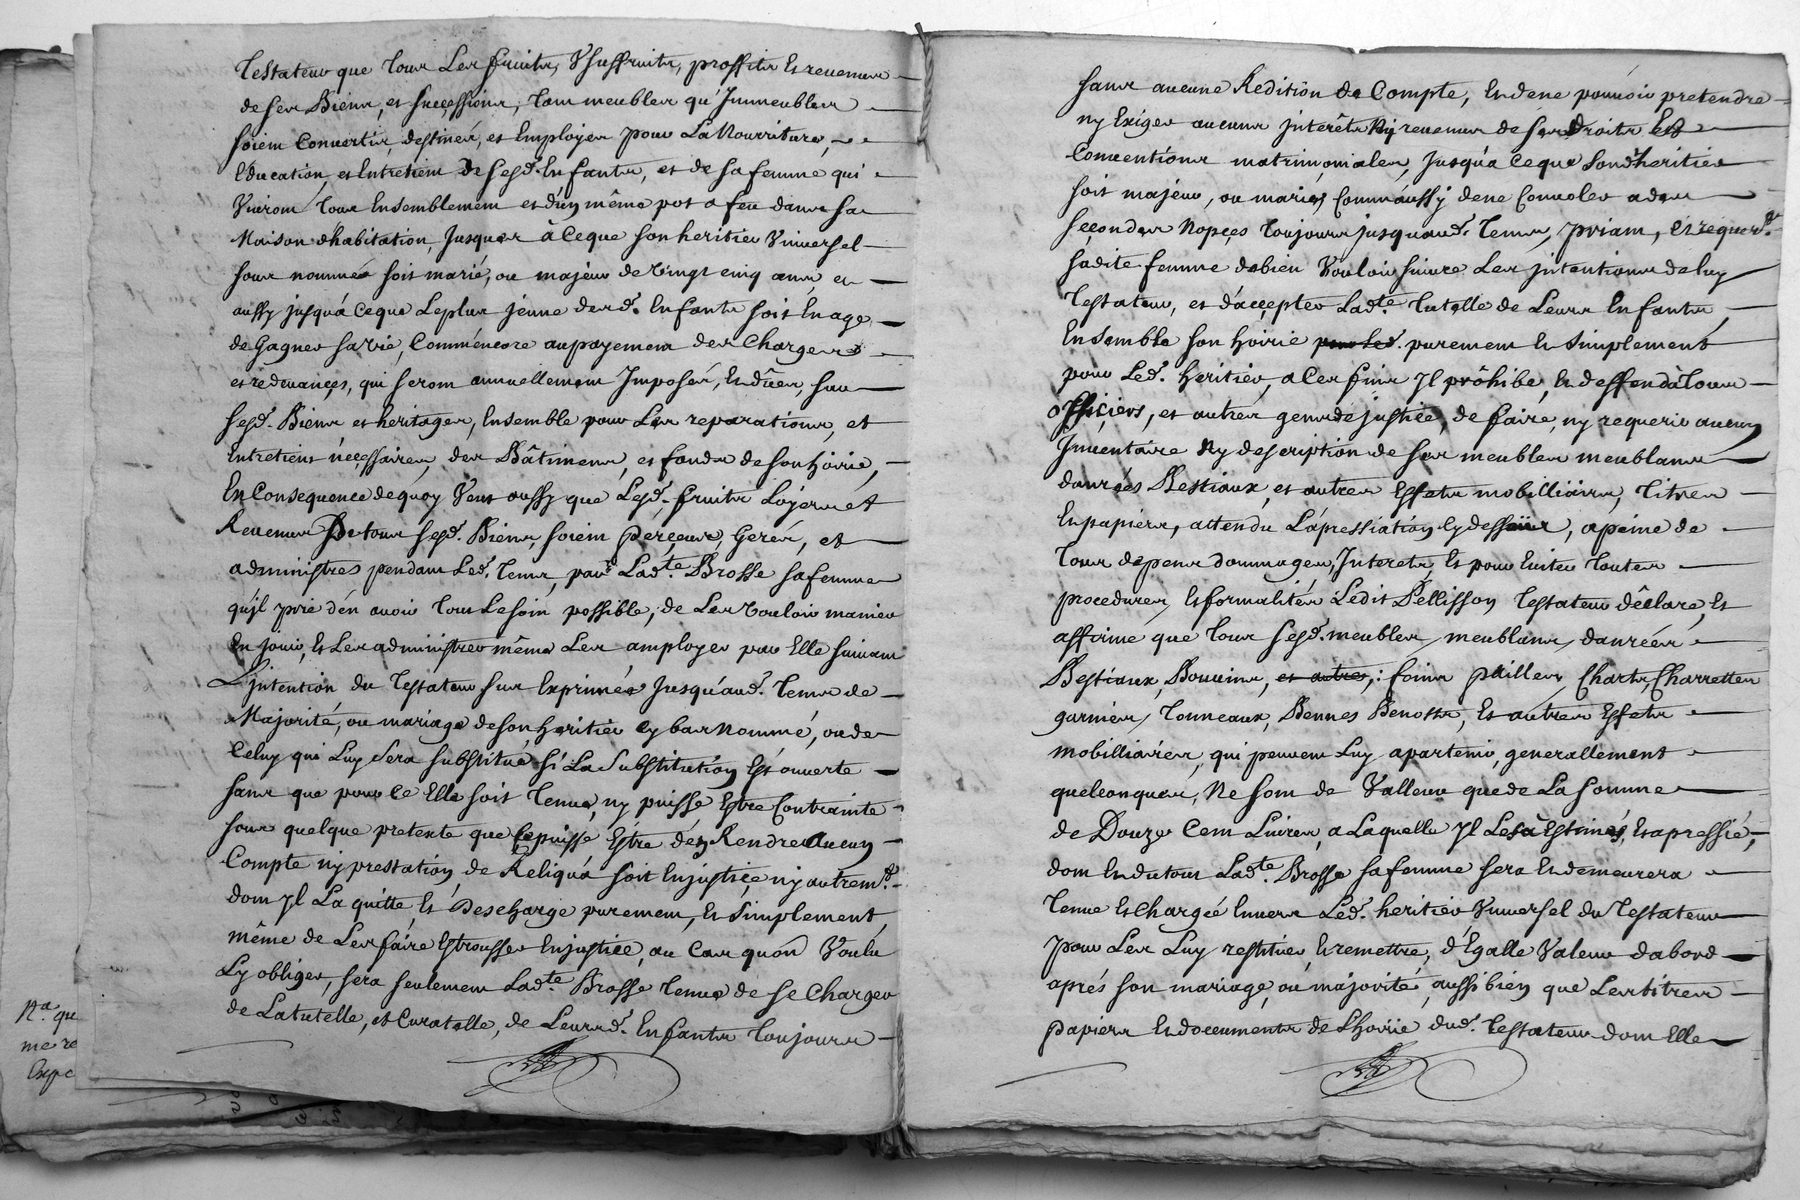 Testateur que tous Les fruits, Vsuffruits, proffits Et reuenus
de Ses Biens, et Successions, tant meubles qu'Jmmeubles
soient Conuertis, destinés, et Employés pour La Nourriture,
Education, et Entretient de Sesd. Enfants, et de sa femme qui
Viuront tous Ensemblement et d'un même pot & feu dans sa
Maison d'habitation, Jusques à Ceque son heritier Vniuersel
sous nommé soit marié, ou majeur de Vingt cinq ans, et
aussy jusqu'à Ceque Leplus jeune desd. Enfants soit En age
de Gagner sa vie, Comm'encore au payement des Charges
et redeuançes, qui seront annuellement Jmposés, Et dûes, sur
sesd. Biens et heritages, Ensemble pour Les reparations, et
Entretiens néçessaires des Bâtiments, et fonds de son hoirie,
En Consequence dequoy Veut aussy que Lesd. fruits Loyers et
Reuenus De tous sesd. Biens, soient perçeus, Gerés, et
administrés pendant Led. tems, par Lad.te Brosse sa femme
qu'il prie d'en auoir tout Le soin possible, de Les vouloir manier
En jouir, Et Les administrer même Les employer par Elle suiuant
L'intention du Testateur sus Exprimée Jusqu'aud. tems de
Majorité, ou mariage de son heritier Cy bas nommé, ou de
Celuy qui Luy sera substitué si La Substitution Est ouuerte
sans que pour Ce Elle soit tenue, ny puisse Estre Contrainte
sous quelque pretexte que Ce puisse Estre d'en Rendre Aucun
Compte ny prestation de Reliqua soit En justiçe ny autrem.t
dont Jl La quitte Et Descharge purement, Et Simplement,
même de Les faire Estrousser En justice, au Cas qu'on Voulu
Ly obliger, sera seulement Lad.te Brosse tenue de se Charger
de La tutelle, et Curatelle, de Leursd. Enfants toujours
N.a que
me re
Expe
sans aucune Redition de Compte, Et de ne pouuoir pretendre
ny Exiger aucuns jnterêts Ny reuenus de ses Droits Et
Conuentions matrimoniales, Jusqu'a Ceque Sond. heritier
soit majeur, ou marié, Comm'aussy de ne Conuoler a des
seçondes Nopçes toujours jusqu'aud. tems, priant, Et requer.t
sadite femme de bien Vouloir suiure Les jntentions de luy
Testateur, et d'accepter Lad.te tutelle de Leurs Enfants,
Ensemble son hoirie pour Led. purement Et Simplement
pour Led. heritier, a Ces fins Jl prohibe, Et deffend à tous
officiers, et autres gens de justice, de faire, ny requerir aucun
Jnuentaire Ny description de ses meubles meublans
danrées Bestiaux, et autres Effets mobilliairs, titres
Et papiers, attendu L'apressiation Cy dessus, a peine de
tous depens dommages, Jnterets, Et pour Euiter toutes
procedures, Et formalités Ledit Pellisson testateur déclare, Et
affirme que tous sesd. meubles meublans, danrées
Bestiaux, Bouuins, et autres, foins pailles, Charts, Charrettes
garnies, tonneaux, Bennes Benosts, Et autres Effets
mobilliaires, qui peuuent Luy apartenir, generallement
quelconques, Ne sont de Valleur que de La somme
de Douze Cent Liures, a Laquelle Jl Les à Estimés, Et apressié,
dont Et du tout Lad.te Brosse sa femme sera Et demeurera
tenue Et Chargée Enuers Led. heritier Vniuersel du Testateur
pour Les Luy restituer, Et remettre, d'Egalle Valeur dabord
après son mariage, ou majorité, aussi bien que Les titres
papiers Et documents de L'hoirie dud. testateur dont Elle